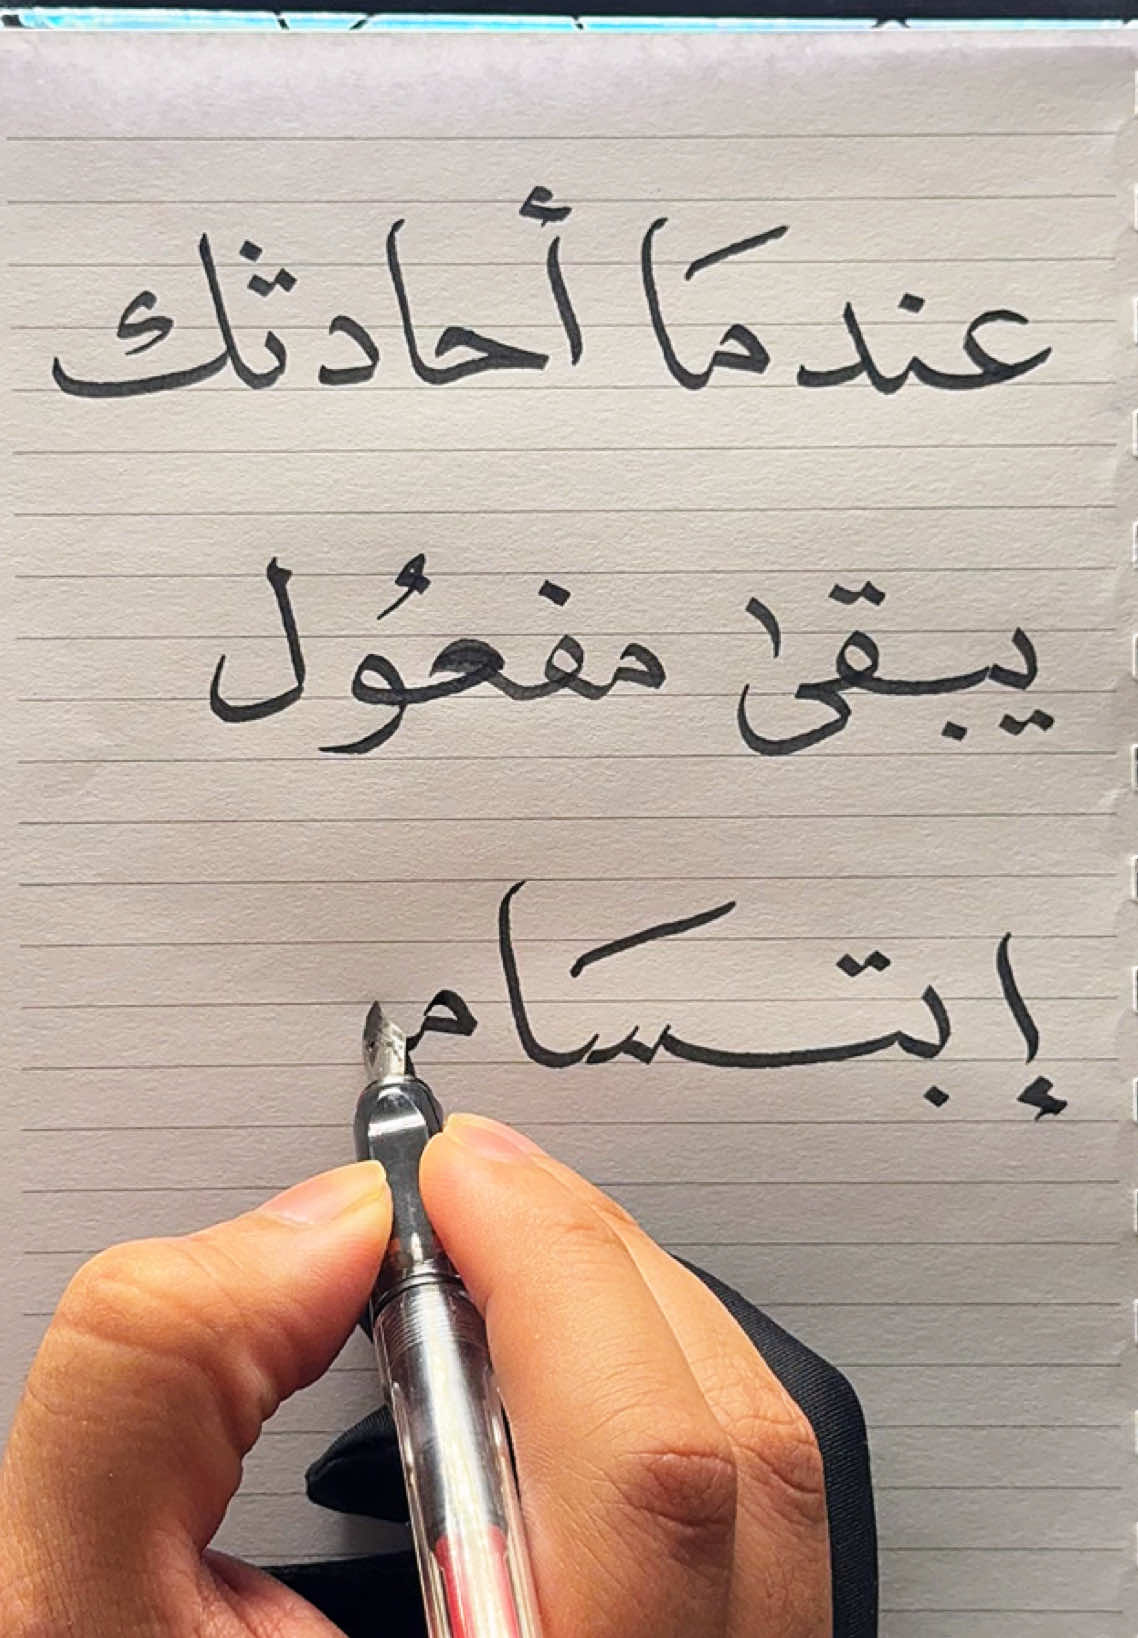 عندمَا أحادثك
يبقىٰ مفعُول
إبتسَام